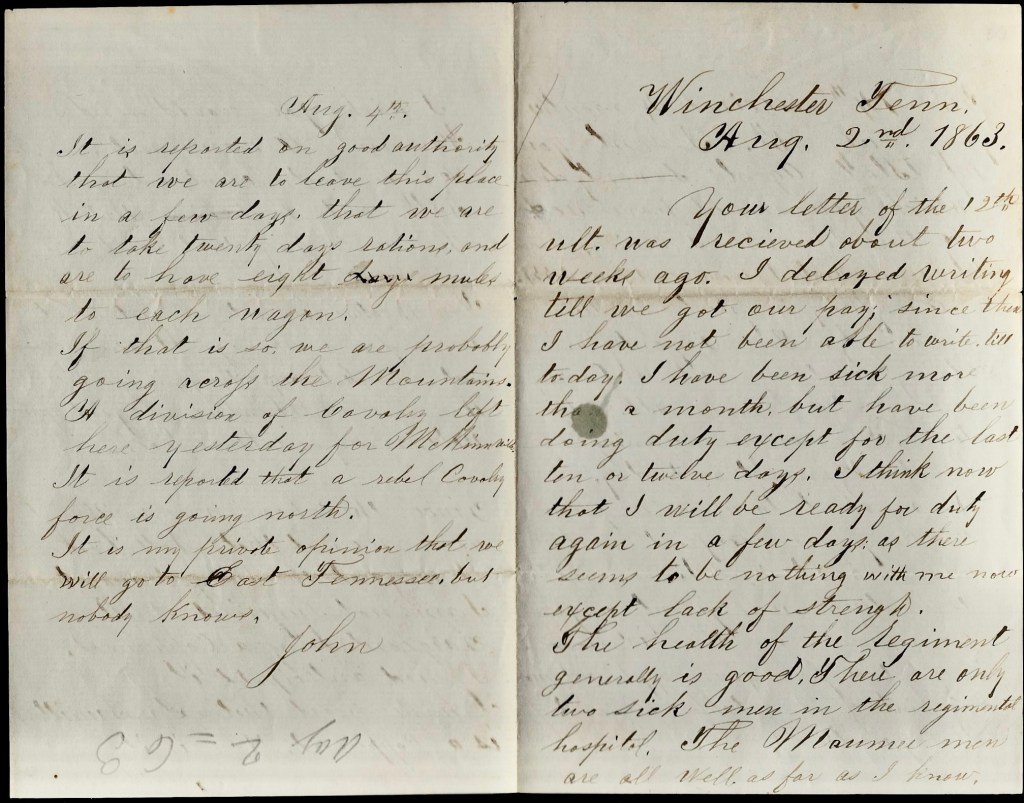 Winchester Tenn.
Aug. 2nd. 1863.
Your letter of the 12th
ult. was recieved about two
weeks ago. I delayed writing
till we got our pay; since then
I have not been able to write till
to-day. I have been sick more
tha a month, but have been
doing duty except for the last
ten or twelve days. I think now
that I will be ready for duty
again in a few days; as there
seems to be nothing with me now
except lack of strengh.
The health of the regiment
generally is good. There are only
two sick men in the regimental
hospital. The Maumee men
are all well, as far as I know.
Aug. 4th.
It is reported on good authority
that we are to leave this place
in a few days, that we are
to take twenty days rations, and
are to have eight days mules
to each wagon.
If that is so, we are probably
going across the Mountains.
A division of Cavalry left
here yesterday for McMinnville
It is reported that a rebel Cavalry
force is going north.
It is my private opinion that we
will go to East Tennessee, but
nobody knows.
John
Aug. 2 = 63